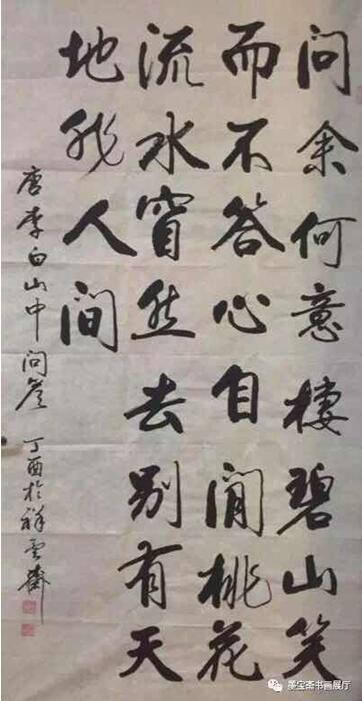 问余何意棲碧山笑
而不答心自闲桃花
流水窅然去别有天
地非人间
唐李白山中问答 丁酉於祥云斋
墨宝斋书画展厅